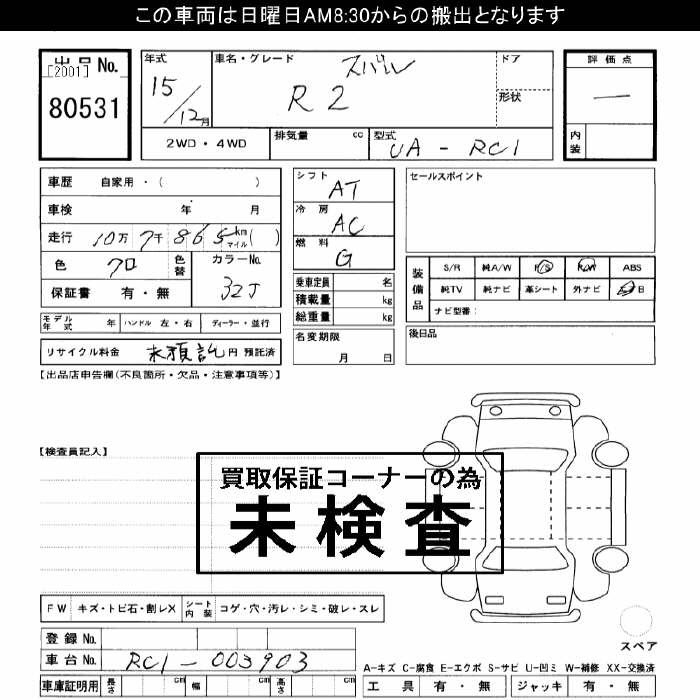 この車両は日曜日AM8:30からの搬出となります
出品 No.
[2001]
80531
年式
15/12月
車名・グレード スバル
R2
ドア
形状
評価点
―
内装
2WD・4WD
排気量 cc
型式 UA-RC1
車歴 自家用・( )
車検 年 月
走行 10万7千865 km マイル ( )
色 クロ 色替
カラーNo. 32J
保証書 有・無
シフト AT
冷房 AC
燃料 G
乗車定員 名
積載量 kg
総重量 kg
名変期限 月 日
セールスポイント
装備品
S/R 純A/W P/S P/W ABS
純TV 純ナビ 革シート 外ナビ
ナビ型番:
後日品
モデル年式 年 ハンドル 左・右 ディーラー・並行
リサイクル料金 未預託 円 預託済
【出品店申告欄(不良箇所・欠品・注意事項等)】
【検査員記入】
買取保証コーナーの為
未検査
FW キズ・トビ石・割レX シート内装 コゲ・穴・汚レ・シミ・破レ・スレ
登録 No.
車台 No. RC1-003903
スペア
A-キズ C-腐食 E-エクボ S-サビ U-凹ミ W-補修 XX-交換済
車庫証明用 長さ cm 幅 cm 高さ cm
工具 有・無 ジャッキ 有・無